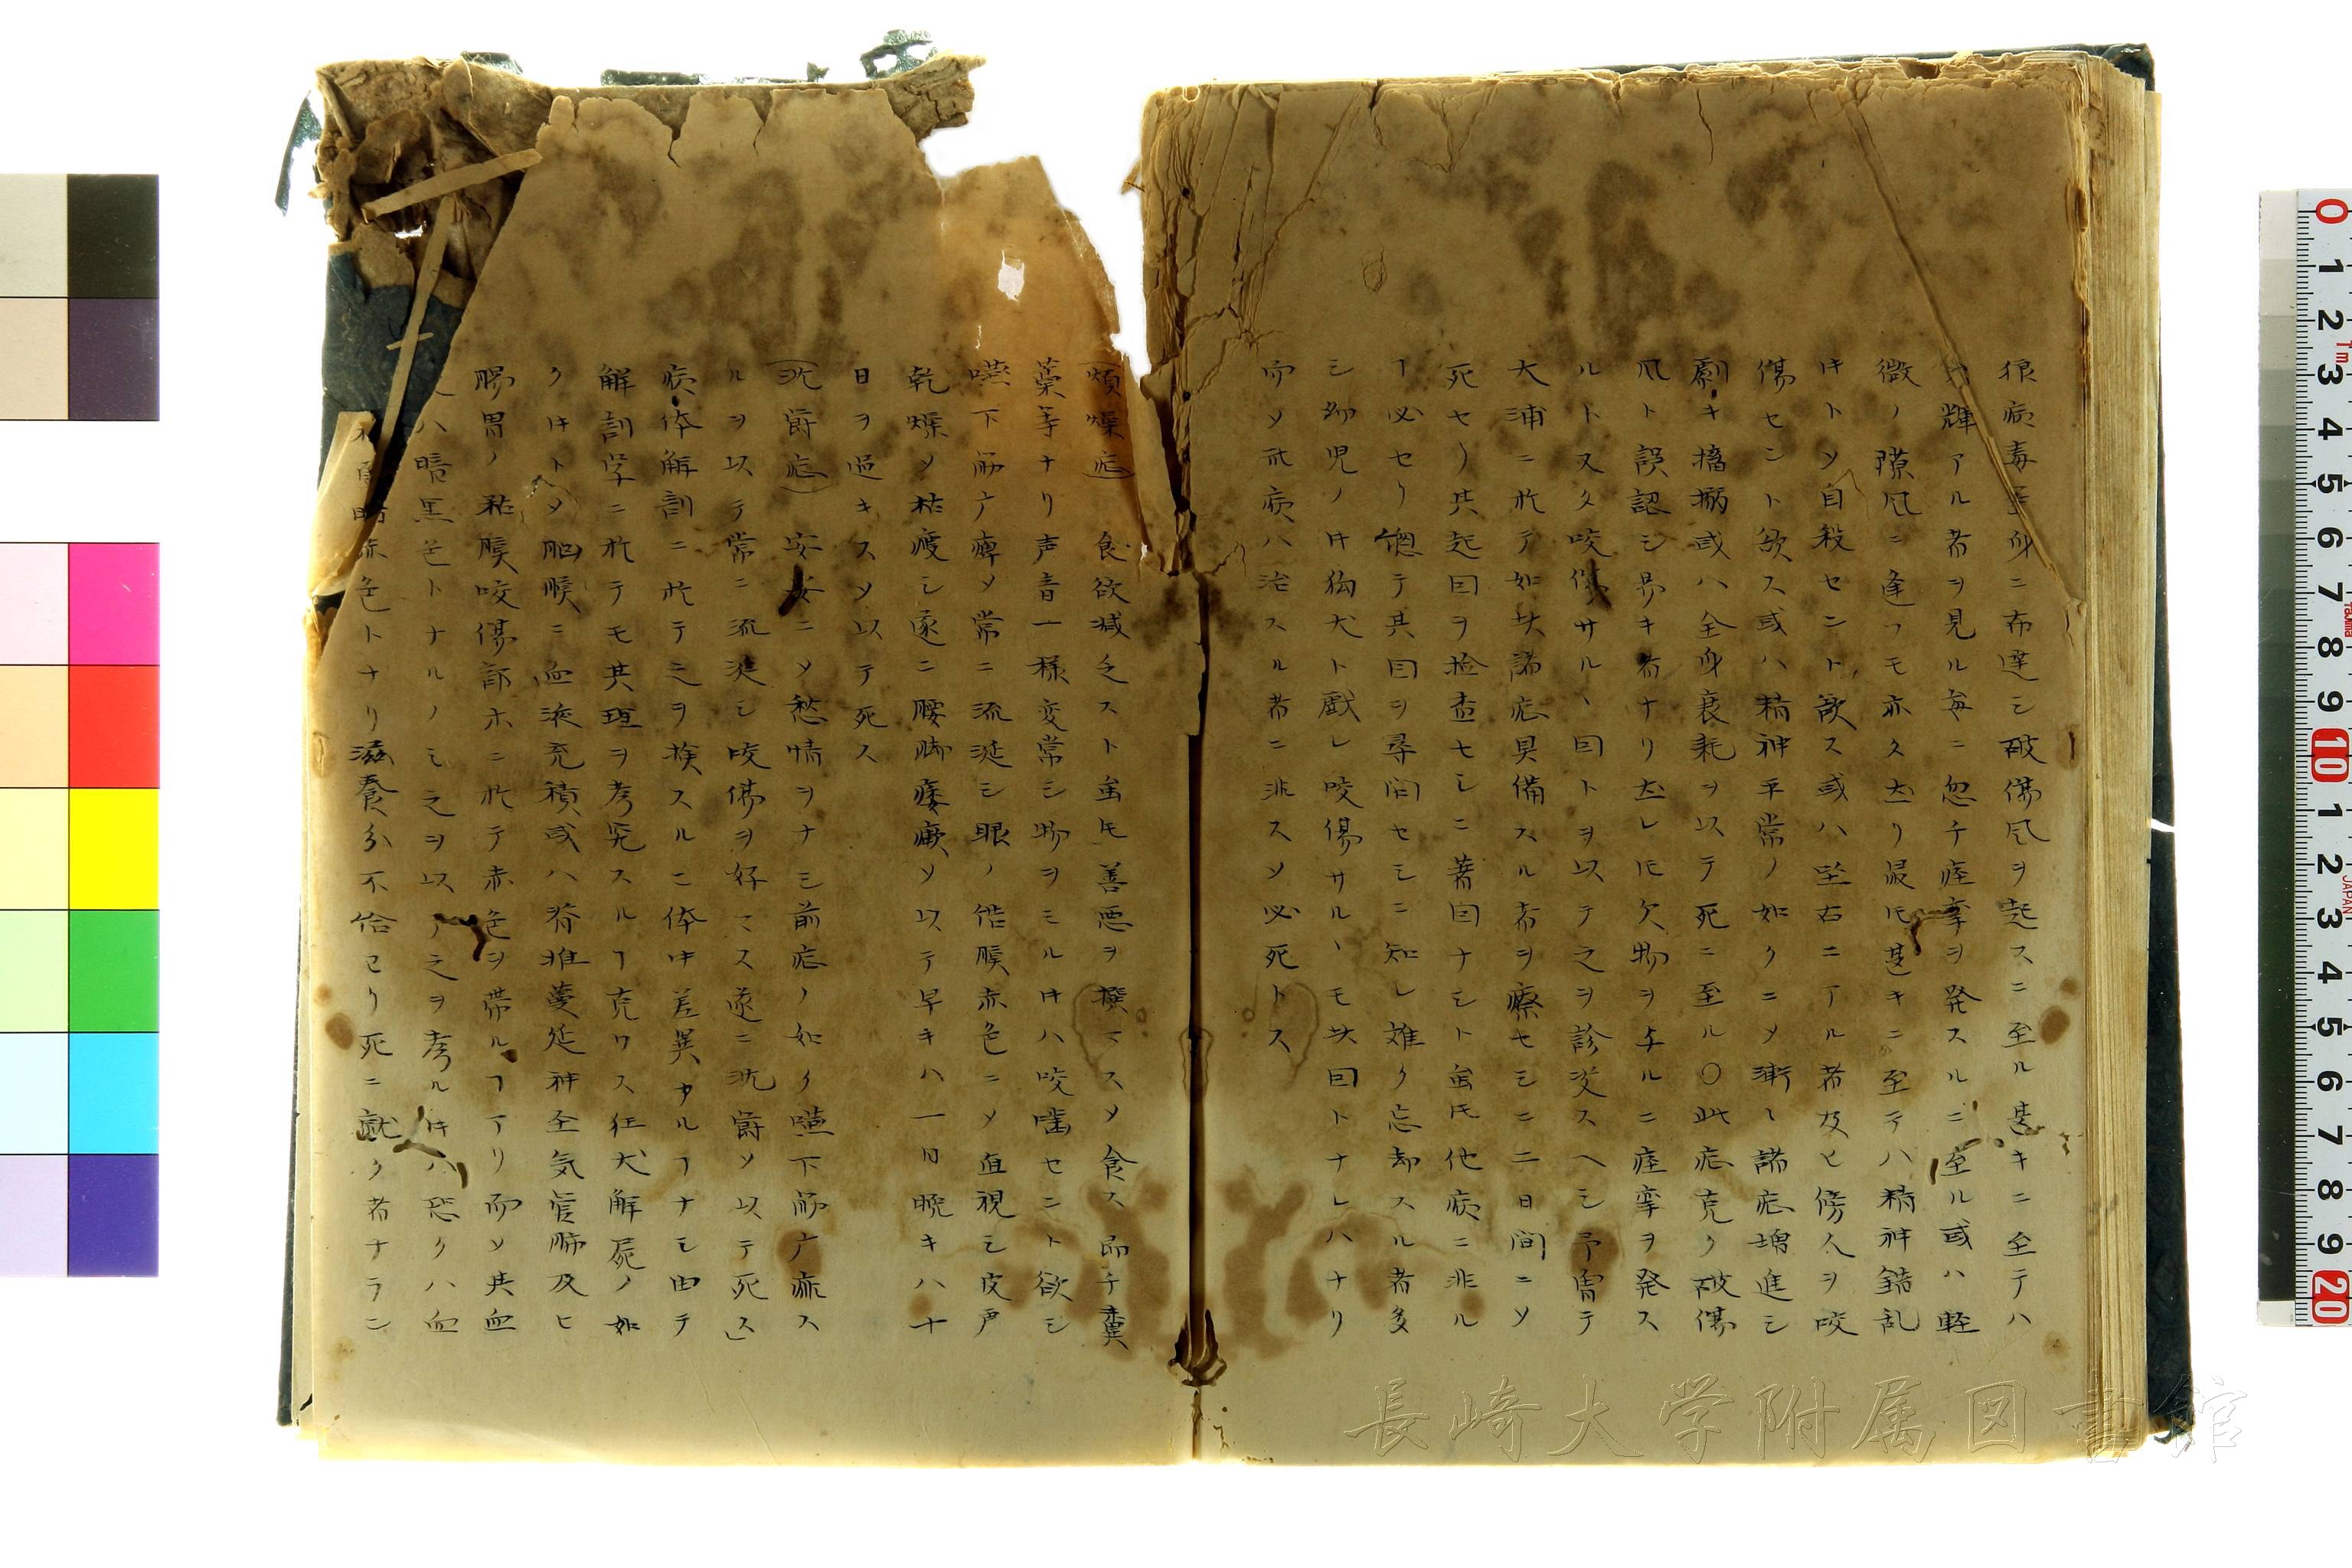 狼病毒全身ニ布達シ破傷風ヲ起スニ至ル甚キニ至テハ
光輝アル者ヲ見ル毎ニ忽チ痙挛ヲ発スルニ至ル或ハ軽
微ノ隙風ニ逢フモ亦タ然リ最𪜈甚キニ至テハ精神錯乱
𪜈トメ自殺セント欲ス或ハ坐右ニアル者及ヒ傍人ヲ咬
傷セント欲ス或ハ精神平常ノ如クニ〆漸々諸症増進シ
劇キ搐搦或ハ全身衰耗ヲ以テ死ニ至ル〇此症克ク破傷
風ト誤認シ易キ者ナリ然レ𪜈欠物ヲ与ルニ痙挛ヲ発ス
ルト又タ咬傷サルヽ因トヲ以テ之ヲ診決スヘシ予曽テ
大浦ニ於テ如此諸症具備スル者ヲ療セシニ二日間ニ〆
死セリ其起因ヲ捡査セシニ著因ナシト虽𪜈他病ニ非ル
ヿ必セリ偬テ其因ヲ尋問セシニ知レ難ク忘却スル者多
シ幼児ノ㐧狗犬ト戯レ咬傷サルヽモ此因トナレハナリ
而〆此病ハ治スル者ニ非ス〆必死トス
(煩燥症) 食欲減乏スト虽𪜈善悪ヲ撰マス〆食ス即チ糞
藁等ナリ声音一様変常シ物ヲミル𪜈ハ咬噛セント欲シ
嚥下筋广痺〆常ニ流涎シ眼ノ結膜赤色ニ〆直視シ皮声
乾燥〆枯痩シ遂ニ腰脚痿痪〆以テ早キハ一日晩キハ十
日ヲ過キス〆以テ死ス
(沈欝症) 安安ニ〆愁情ヲナシ前症ノ如ク嚥下筋广痲ス
ルヲ以テ常ニ流涎シ咬傷ヲ好マス遂ニ沈欝〆以テ死ス」
病体解剖ニ於テ之ヲ挨スルニ体中差異ナルヿナシ由テ
解剖学ニ於テモ其理ヲ考究スルヿ克ワス狂犬解屍ノ如
ク𪜈ト〆脳喉ニ血液充積或ハ脊椎蔓延神全気管肺及ヒ
腸胃ノ粘膜咬傷部ホニ於テ赤色ヲ帯ルヿアリ而〆其血
ハ暗黒色トナルノミ之ヲ以テ之ヲ考ルキハ恐クハ血
暗赤色トナリ滋養分不佮ヨリ死ニ就ク者ナラン
長崎大学附属図書館